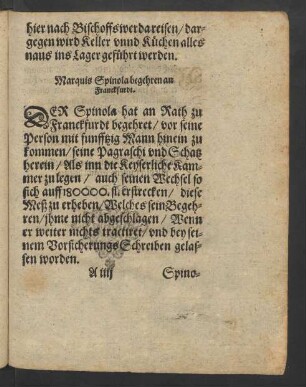 hier nach Bischoffswerda reisen/ dar-
gegen wird Keller vnnd Küchen alles
naus ins Lager geführt werden.
Marquis Spinola begehren an
Franckfurdt.
DER Spinola hat an Rath zu
Franckfurdt begehret/ vor seine
Person mit funfftzig Mann hinein zu
kommen/ seine Pagraschi vnd Schatz
herein/ Als inn die Keyserliche Kam-
mer zu legen/ auch seinen Wechsel so
sich auff 180000. fl. erstrecken/ diese
Meß zu erheben/ Welches sein Begeh-
ren/ jhme nicht abgeschlagen/ Wenn
er weiter nichts tractiret/ vnd bey sei-
nem Vorsicherungs Schreiben gelas-
sen worden.
A iiij Spino-